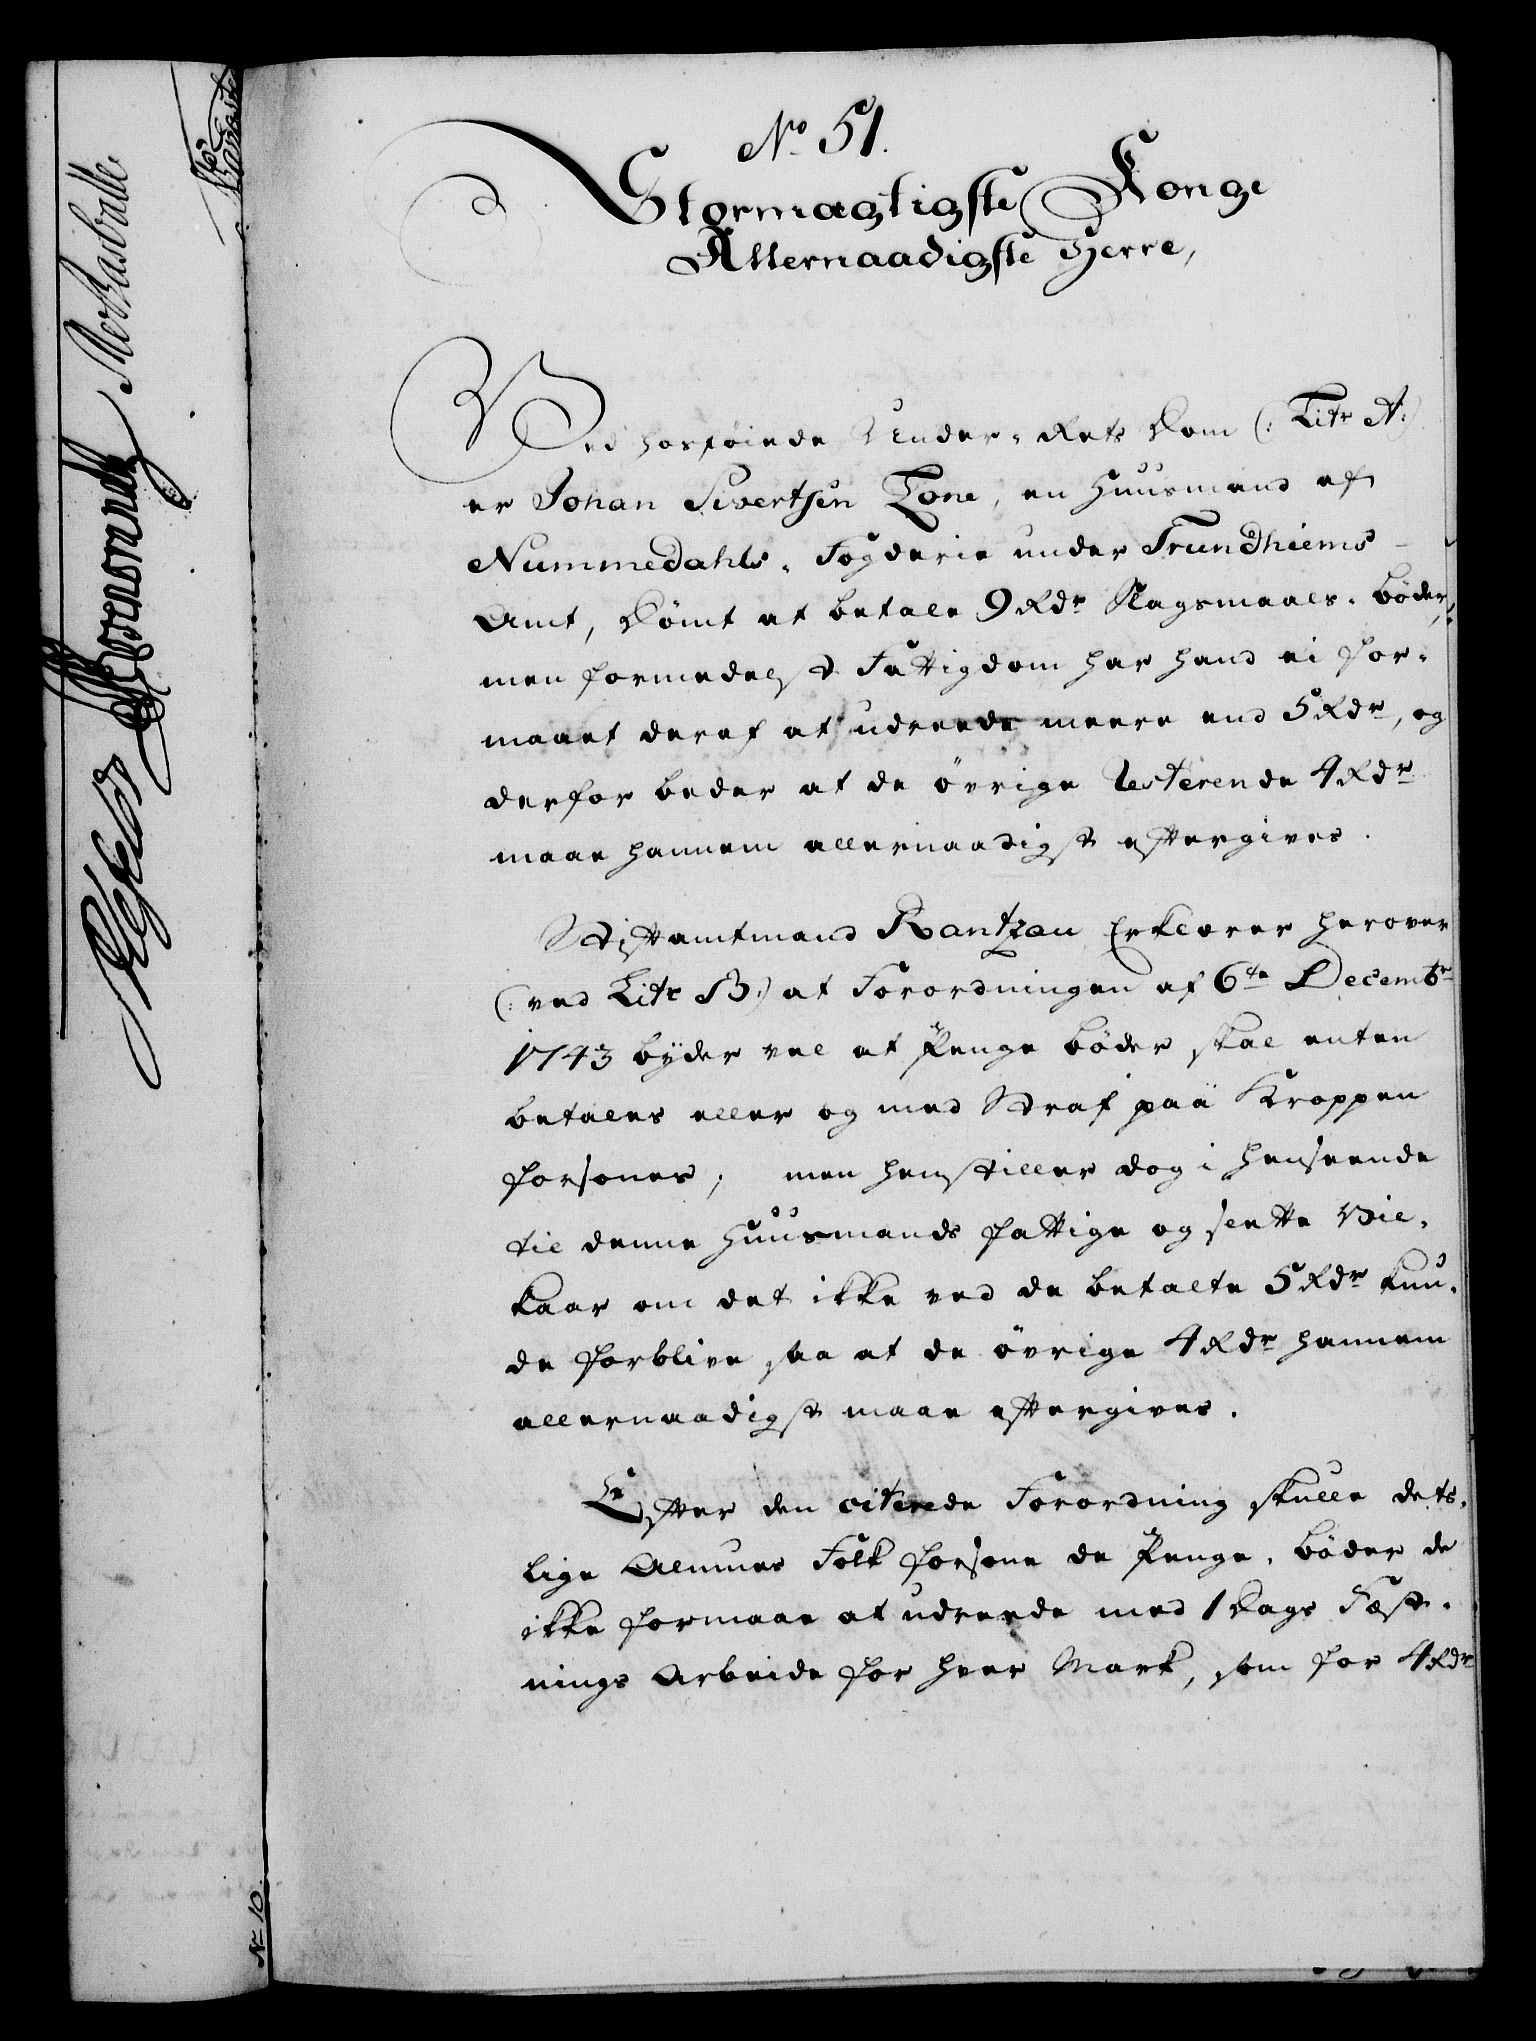 No 51.
Stormægtigste Konge
Allernaadigste Herre,
Ved hosføiede Under-Rets Dom (: Litr A:)
er Johan Sivertsen Tone, en Huusmand af
Nummedahls-Fogderie under Trundhiems-
Amt, dömt at betale 9 Rdr Slagsmaals-bøder,
men formedelst Fattigdom har hand ei for-
maaet deraf at udreede meere end 5 Rdr, og
derfor beder at de øvrige resterende 4 Rdr
maae hannem allernaadigst eftergives.
Stiftamtmand Rantzau Erklærer herover
(: ved Litr B:) at Forordningen af 6te Decembr
1743 byder vel at Penge bøder skal enten
betales eller og med Straf paa Kroppen
forsones; men henstiller dog i henseende
til denne Huusmands fattige og slette Vil-
kaar om det ikke ved de betalte 5 Rdr kun-
de forblive saa at de øvrige 4 Rdr hannem
allernaadigst maae eftergives.
Efter den citerede Forordning skulle dets-
lige Almues Folk forsone de Penge-bøder de
ikke formaae at udreede med 1 Dags Fæst-
nings Arbeide for hver Mark, som for 4 Rdr
No 10.